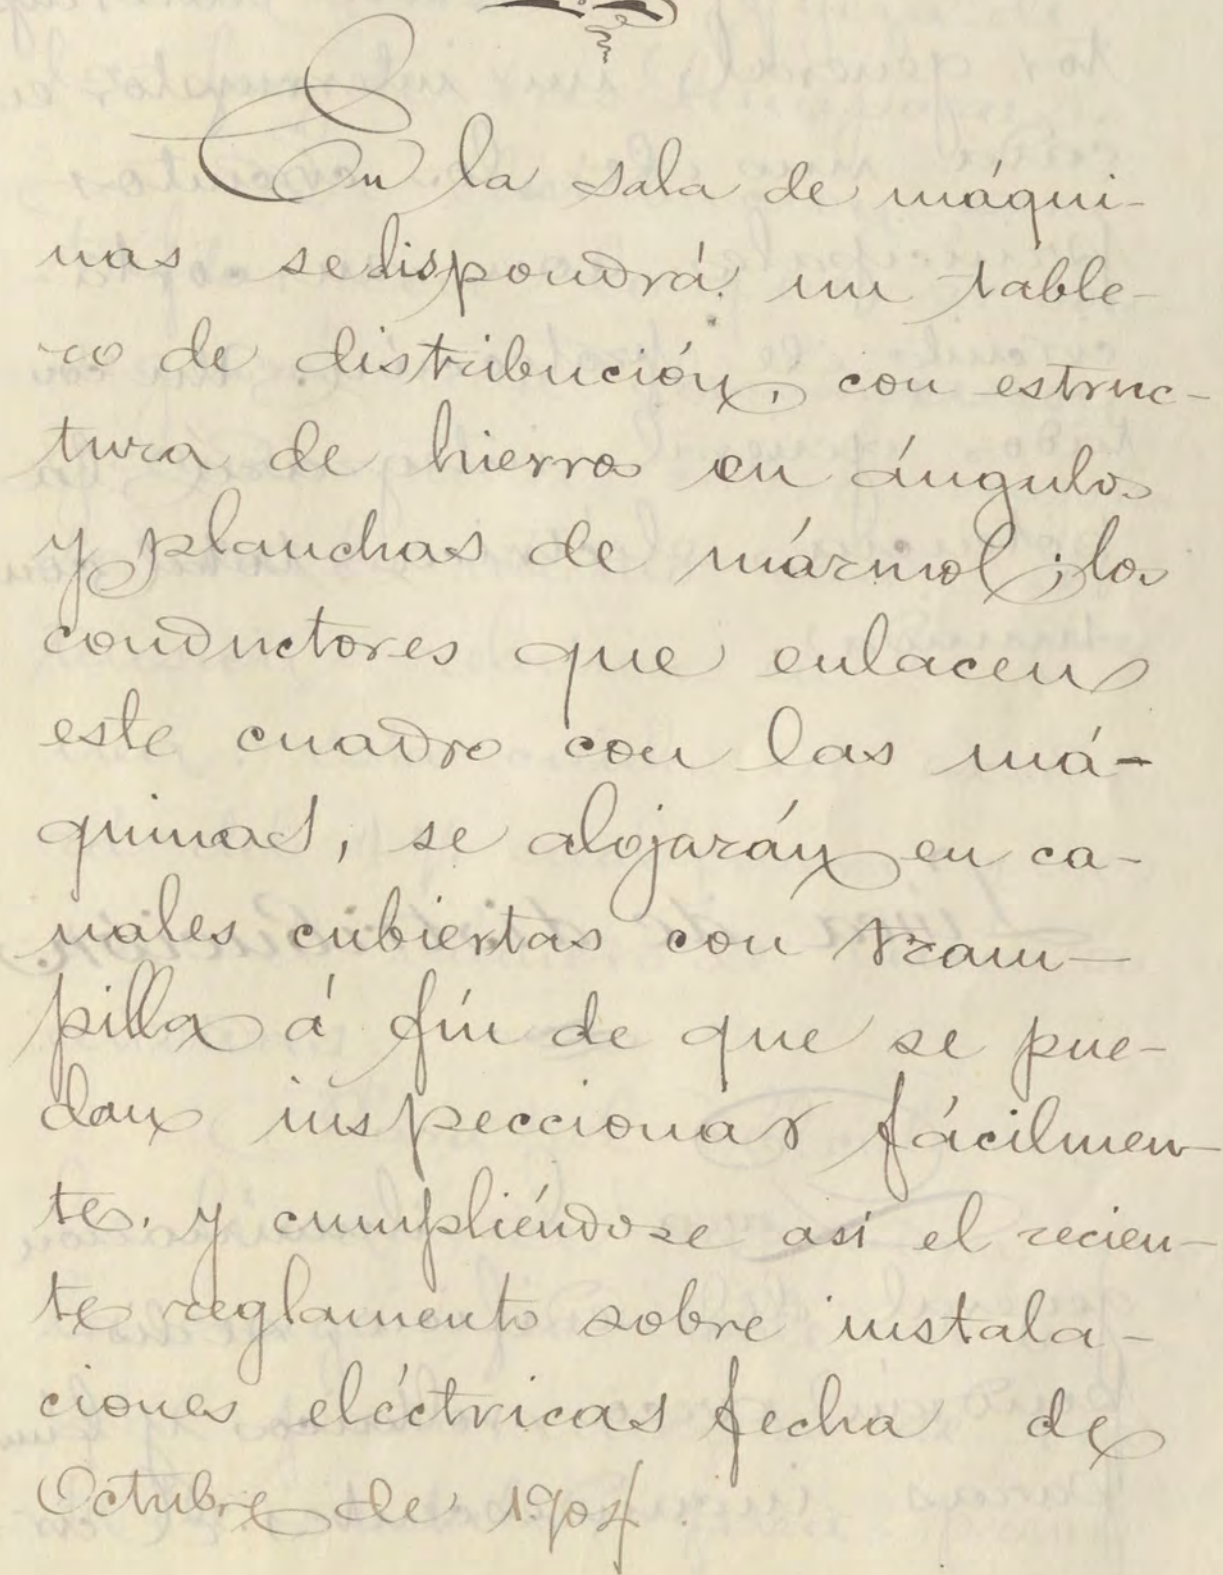 En la sala de máqui-
nas se dispondrá un table-
ro de distribución, con estruc-
tura de hierros en ángulos
y planchas de mármol; los
conductores que enlacen
este cuadro con las má-
quinas, se alojarán en ca-
nales cubiertas con tram-
pilla á fín de que se pue-
dan inspeccionar fácilmen-
te. y cumpliéndose asi el recien-
te reglamento sobre instala-
ciones eléctricas fecha de
Octubre de 1.904.